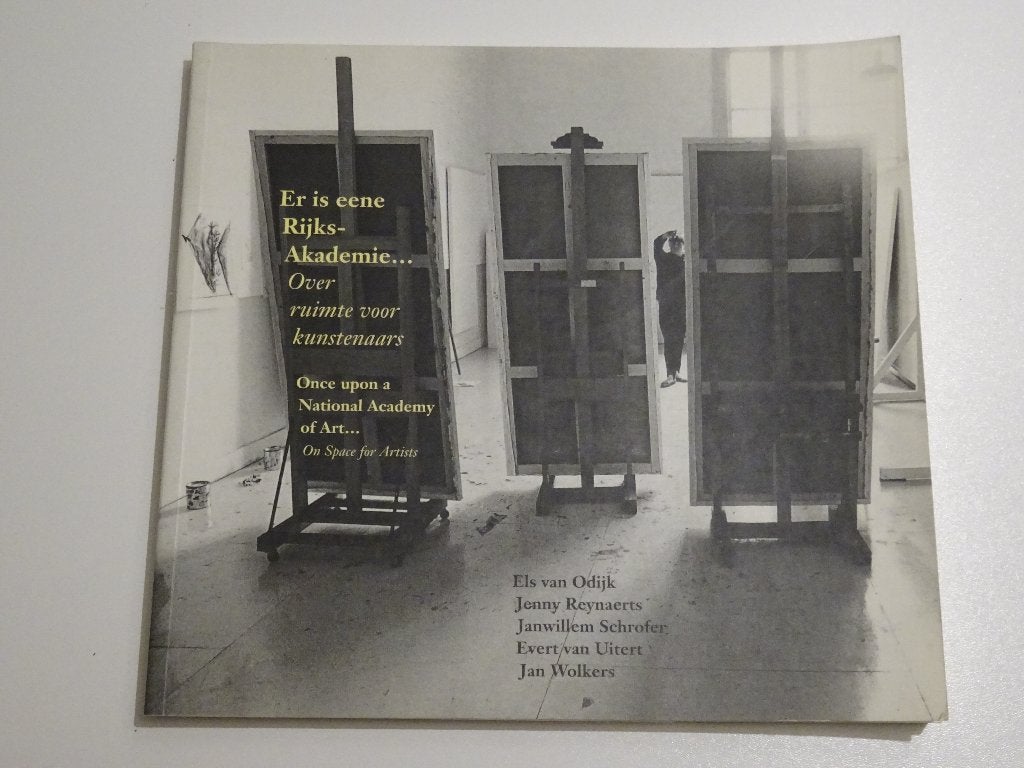 Er is eene
Rijks-
Akademie...
Over
ruimte voor
kunstenaars
Once upon a
National Academy
of Art...
On Space for Artists
Els van Odijk
Jenny Reynaerts
Janwillem Schrofer
Evert van Uitert
Jan Wolkers